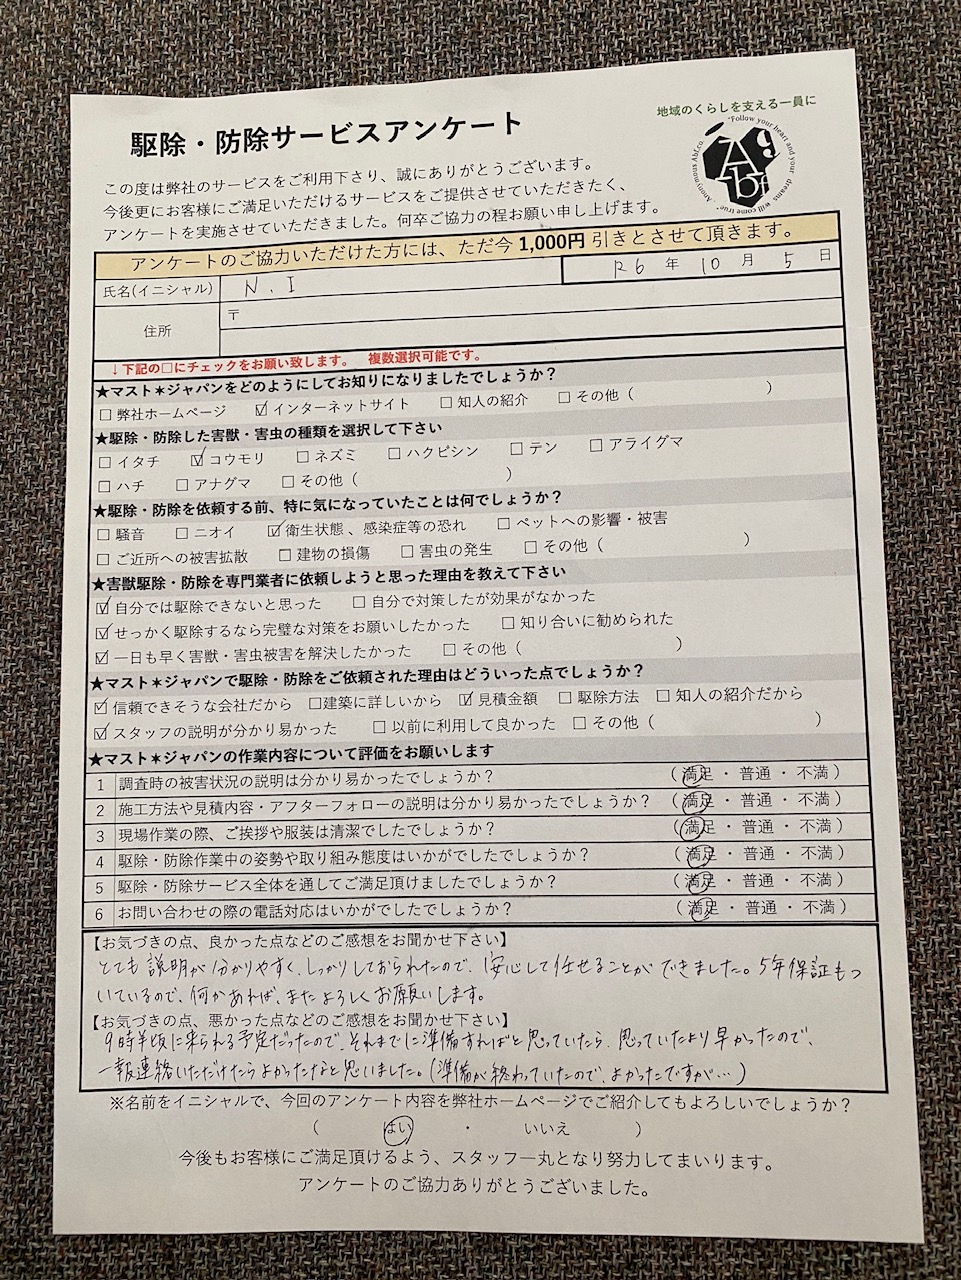 駆除・防除サービスアンケート
地域のくらしを支える一員に
"Follow your heart and your dreams will come true" Anonymous Abf.co.
A9
bf
この度は弊社のサービスをご利用下さり、誠にありがとうございます。
今後更にお客様にご満足いただけるサービスをご提供させていただきたく、
アンケートを実施させていただきました。何卒ご協力の程お願い申し上げます。
アンケートのご協力いただけた方には、ただ今 1,000円 引きとさせて頂きます。
氏名(イニシャル) N.I R6 年 10 月 5 日
住所 〒
↓下記の□にチェックをお願い致します。 複数選択可能です。
★マスト✶ジャパンをどのようにしてお知りになりましたでしょうか?
□ 弊社ホームページ ☑ インターネットサイト □ 知人の紹介 □ その他 ( )
★駆除・防除した害獣・害虫の種類を選択して下さい
□ イタチ ☑ コウモリ □ ネズミ □ ハクビシン □ テン □ アライグマ
□ ハチ □ アナグマ □ その他 ( )
★駆除・防除を依頼する前、特に気になっていたことは何でしょうか?
□ 騒音 □ ニオイ ☑ 衛生状態、感染症等の恐れ □ ペットへの影響・被害
□ ご近所への被害拡散 □ 建物の損傷 □ 害虫の発生 □ その他 ( )
★害獣駆除・防除を専門業者に依頼しようと思った理由を教えて下さい
☑ 自分では駆除できないと思った □ 自分で対策したが効果がなかった
☑ せっかく駆除するなら完璧な対策をお願いしたかった □ 知り合いに勧められた
☑ 一日も早く害獣・害虫被害を解決したかった □ その他 ( )
★マスト✶ジャパンで駆除・防除をご依頼された理由はどういった点でしょうか?
☑ 信頼できそうな会社だから □建築に詳しいから ☑ 見積金額 □ 駆除方法 □ 知人の紹介だから
☑ スタッフの説明が分かり易かった □ 以前に利用して良かった □ その他 ( )
★マスト✶ジャパンの作業内容について評価をお願いします
1 調査時の被害状況の説明は分かり易かったでしょうか? (満足・普通・不満)
2 施工方法や見積内容・アフターフォローの説明は分かり易かったでしょうか? (満足・普通・不満)
3 現場作業の際、ご挨拶や服装は清潔でしたでしょうか? (満足・普通・不満)
4 駆除・防除作業中の姿勢や取り組み態度はいかがでしたでしょうか? (満足・普通・不満)
5 駆除・防除サービス全体を通してご満足頂けましたでしょうか? (満足・普通・不満)
6 お問い合わせの際の電話対応はいかがでしたでしょうか? (満足・普通・不満)
【お気づきの点、良かった点などのご感想をお聞かせ下さい】
とても説明が分かりやすく、しっかりしておられたので、安心して任せることができました。5年保証もつ
いているので、何かあれば、またよろしくお願いします。
【お気づきの点、悪かった点などのご感想をお聞かせ下さい】
9時半頃に来られる予定だったので、それまでに準備すればと思っていたら、思っていたより早かったので、
一報連絡いただけたらよかったなと思いました。(準備が終わっていたので、よかったですが…)
※名前をイニシャルで、今回のアンケート内容を弊社ホームページでご紹介してもよろしいでしょうか?
( はい ・ いいえ )
今後もお客様にご満足頂けるよう、スタッフ一丸となり努力してまいります。
アンケートのご協力ありがとうございました。